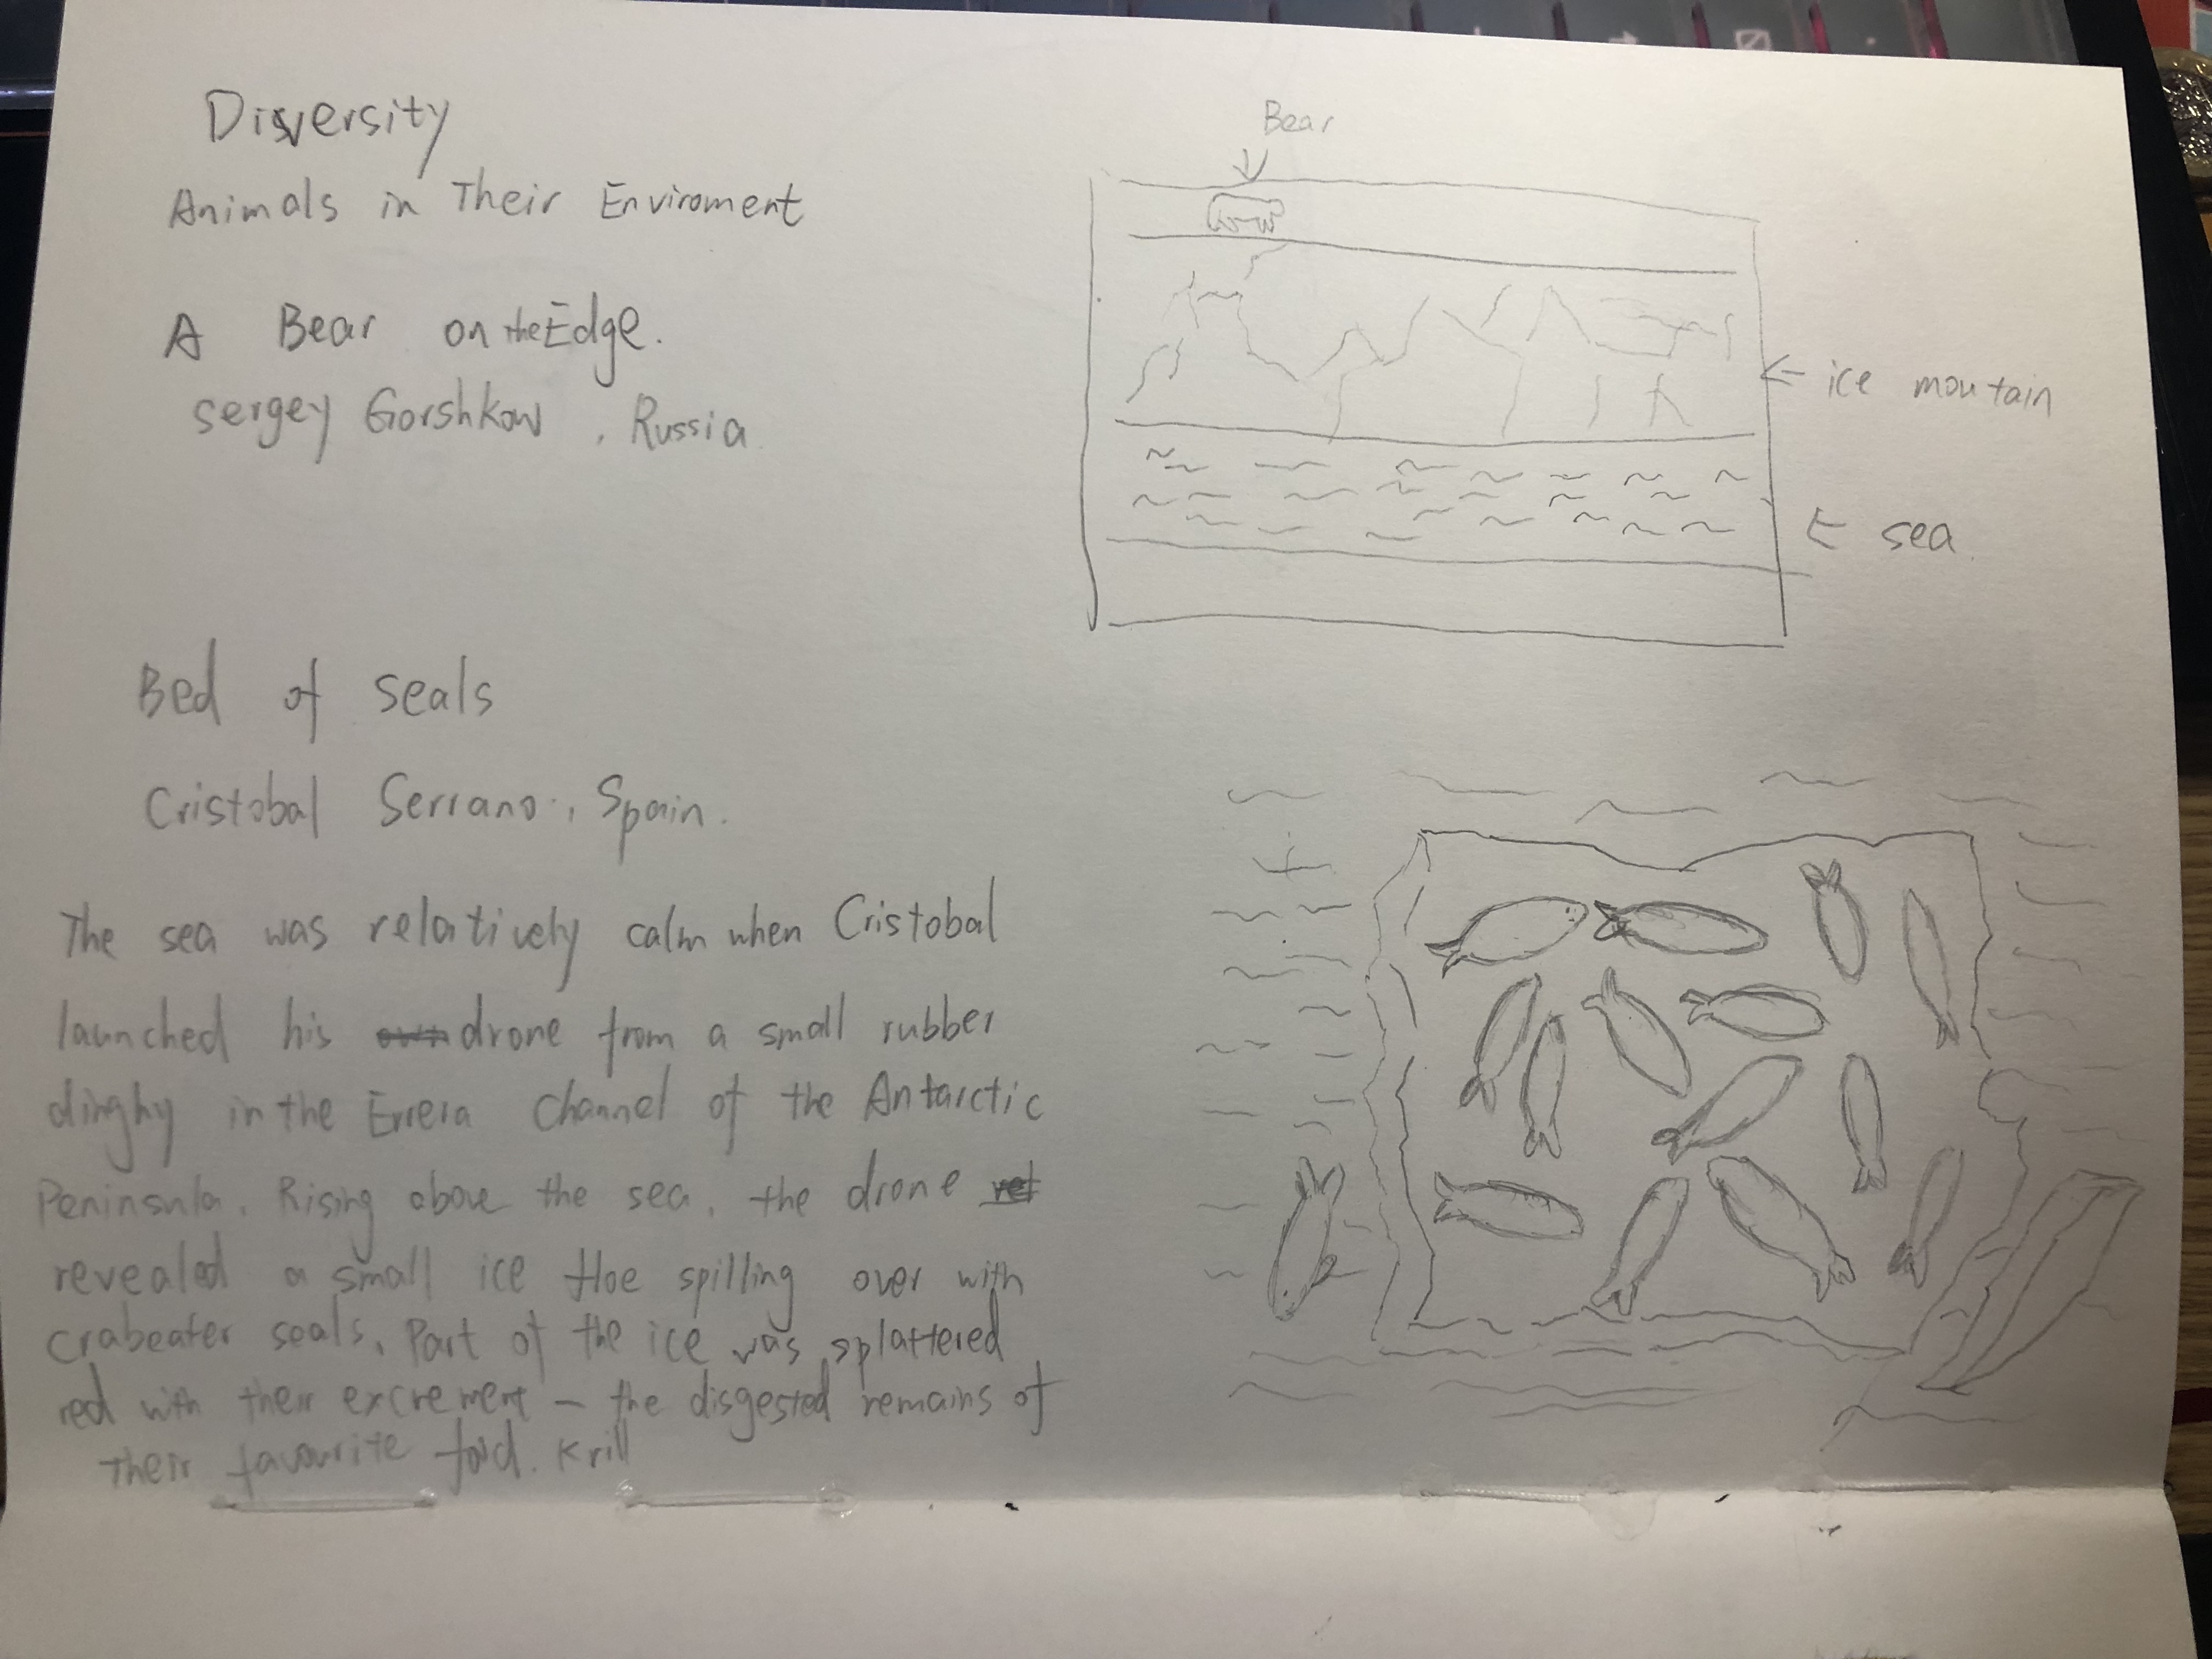 Diversity
Animals in Their Enviroment
A Bear on the Edge.
sergey Gorshkow, Russia
Bear
ice moutain
sea
Bed of seals
Cristobal Serrano, Spain.
The sea was relatively calm when Cristobal
launched his own drone from a small rubber
dinghy in the Errera Channel of the Antarctic
Peninsula. Rising above the sea, the drone
revealed a small ice floe spilling over with
crabeater seals. Part of the ice was splattered
red with their excrement – the disgested remains of
their favourite food. Krill